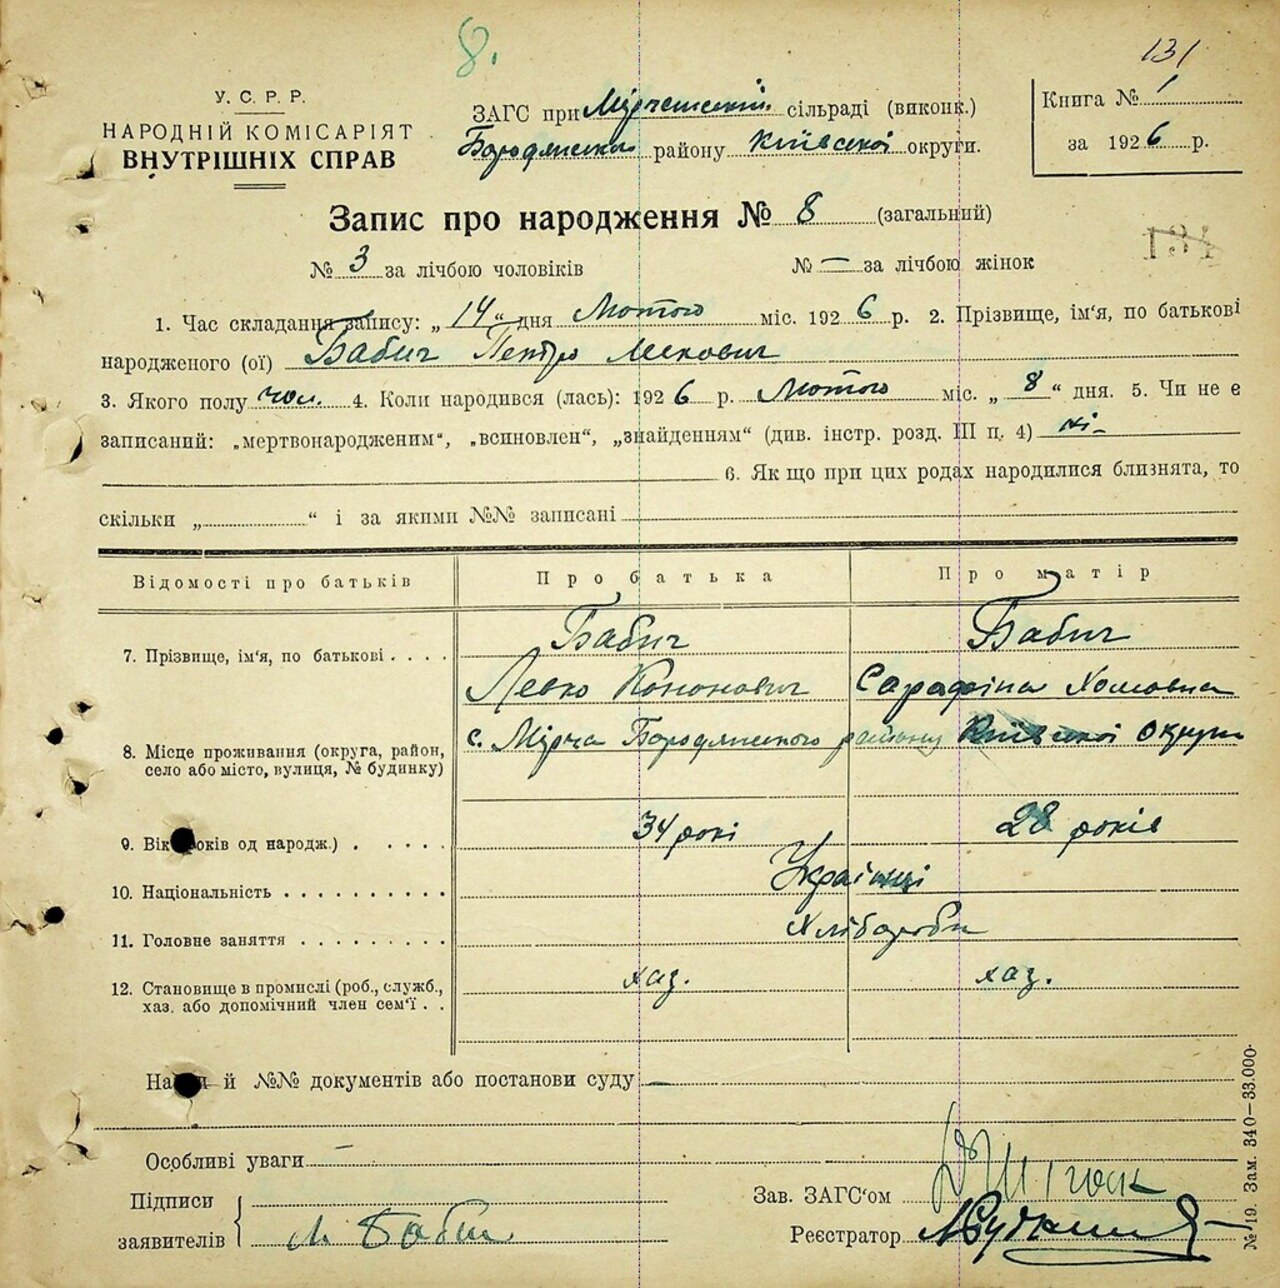 8.
131
У. С. Р. Р.
НАРОДНІЙ КОМІСАРІЯТ
ВНУТРІШНІХ СПРАВ
ЗАГС при Мірчанській сільраді (виконк.)
Бородянського району Київської округи.
Книга № 1
за 1926 р.
Запис про народження № 8 (загальний)
№ 3 за лічбою чоловіків № — за лічбою жінок
1. Час складання запису: „14“ дня Лютого міс. 1926 р. 2. Прізвище, ім'я, по батькові
народженого (ої) Бабич Петро Левкович
3. Якого полу чол. 4. Коли народився (лась): 1926 р. Лютого міс. „8“ дня. 5. Чи не є
записаний: „мертвонародженим“, „всиновлен“, „знайденням“ (див. інстр. розд. III п. 4) ні
6. Як що при цих родах народилися близнята, то
скільки „ “ і за якими №№ записані
Відомості про батьків Про батька Про матір
7. Прізвище, ім'я, по батькові . . . . Бабич Бабич
Левко Кононович Сарафіна Хомовна
8. Місце проживання (округа, район,
село або місто, вулиця, № будинку)
с. Мірча Бородянського району Київської округи
9. Вік років од народж.) . . . . . 34 рокі 28 років
10. Національність . . . . . . . . . Українці
11. Головне заняття . . . . . . . . Хлібороби
12. Становище в промислі (роб., служб.,
хаз. або допомічний член сем'ї . .
хаз. хаз.
й №№ документів або постанови суду —
Особливі уваги —
Підписи
заявителів
Л. Бабич
Зав. ЗАГС'ом
Реєстратор
№ 19. Зам. 340—33.000.